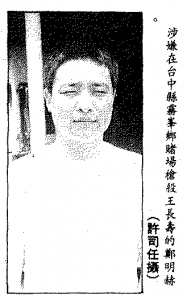 涉嫌在台中縣霧峯鄉賭場槍殺王長壽的鄭明赫
。
(許司任攝)